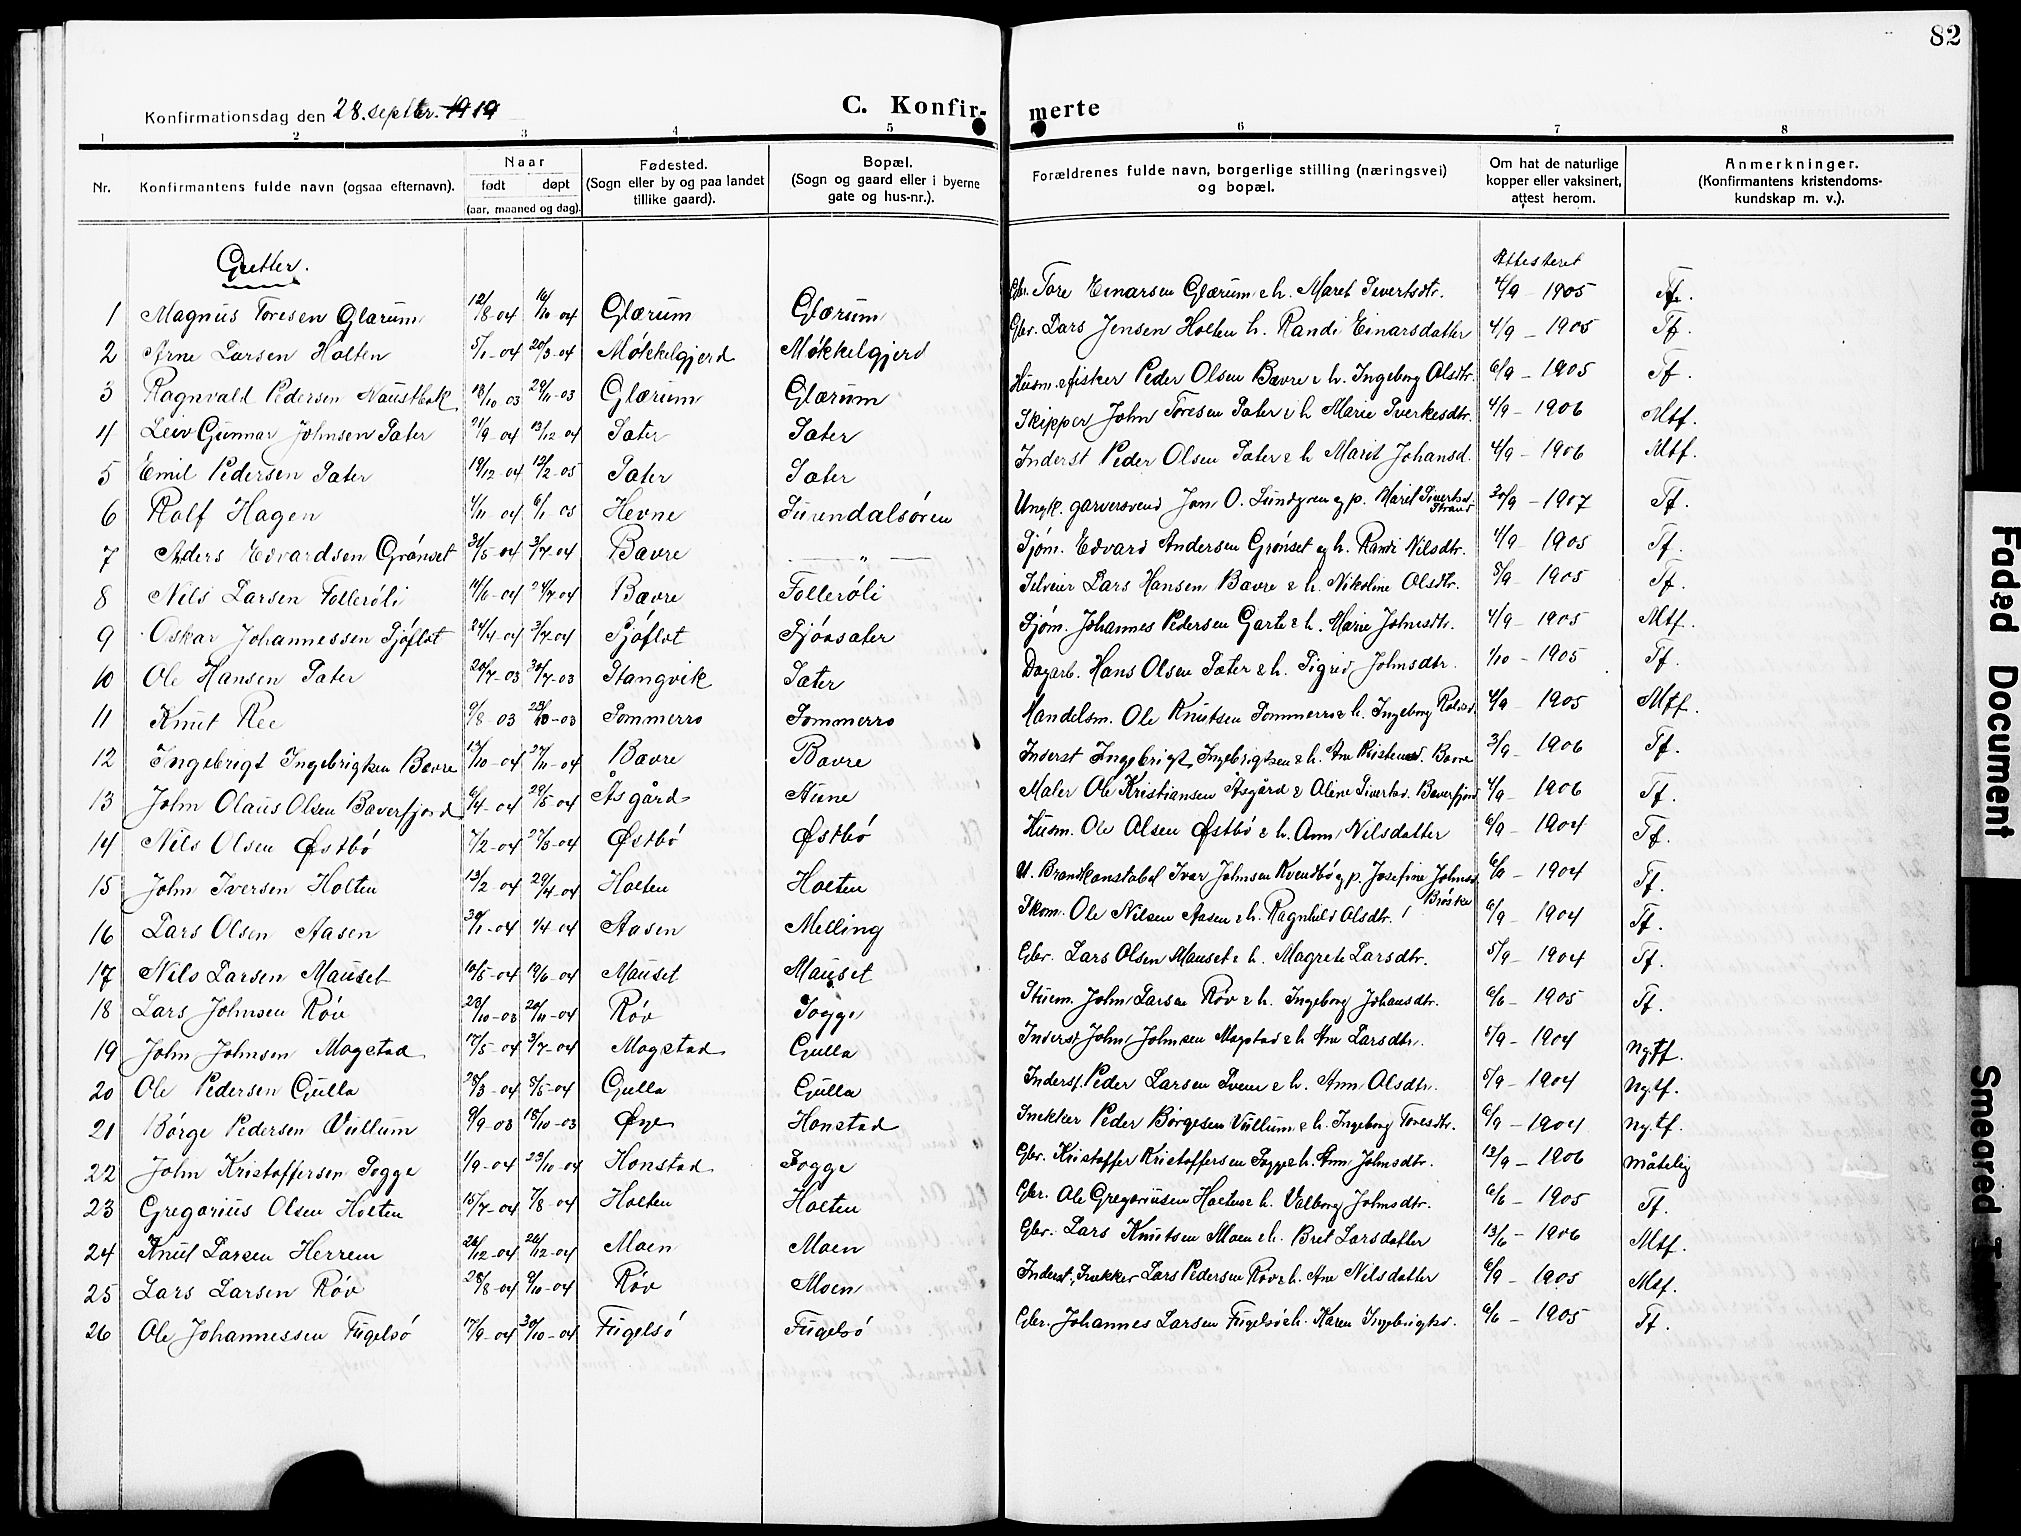 82
Konfirmationsdag den 28. septbr. 1919
C. Konfirmerte
1 2 3 4 5 6 7 8
Nr. Konfirmantens fulde navn (ogsaa efternavn). Naar født døpt (aar, maaned og dag). Fødested. (Sogn eller by og paa landet tillike gaard). Bopæl. (Sogn og gaard eller i byerne gate og hus-nr.). Forældrenes fulde navn, borgerlige stilling (næringsvei) og bopæl. Om hat de naturlige kopper eller vaksinert, attest herom. Anmerkninger. (Konfirmantens kristendoms-kundskap m. v.).
Gutter. Attesteret
1 Magnus Toresen Glærum 12/8-04 16/10 04 Glærum Glærum Gbr. Tore Einarsen Glærum & h. Maret Sivertsdtr. 4/9 - 1905 Tf.
2 Arne Larsen Holten 5/1-04 20/3-04 Møkkelgjerd Møkkelgjerd Gbr. Lars Jensen Holten h. Randi Einarsdatter 4/9 - 1905 Tf.
3 Ragnvald Pedersen Naustbak 18/10 03 29/11-03 Glærum Glærum Husm. & fisker Peder Olsen Bævre & h. Ingeborg Olsdtr. 6/9 - 1905 Tf.
4 Leiv Gunnar Johnsen Sæter 21/9-04 13/12 04 Sæter Sæter Skipper John Toresen Sæter & h Marie Sverkesdtr. 4/9 - 1906 Mtf.
5 Emil Pedersen Sæter 19/12-04 12/2-05 Sæter Sæter Inderst Peder Olsen Sæter & h Marit Johansd. 4/9 - 1906 Mtf.
6 Rolf Hagen 4/11 04 6/1 05 Hevne Surendalsøren Ungk. garversvend Jon O. Lundgren g p. Maret Sivertsd. Strand 20/9 - 1907 Tf.
7 Anders Edvardsen Grønset 31/5-04 3/7-04 Bævre — „ — Sjøm. Edvard Andersen Grønset & h. Randi Nilsdtr. 4/9 - 1905 Tf.
8 Nils Larsen Follerøli 11/6-04 24/7-04 Bævre Follerøli Selveier Lars Hansen Bævre & h. Nikoline Olsdtr. 8/9 - 1905 Tf.
9 Oskar Johannessen Sjøflot 24/4-04 3/7-04 Sjøflot Sjøasæter Sjøm. Johannes Pedersen Garte & h. Marie Johnsdtr. 4/9 - 1905 Mtf.
10 Ole Hansen Sæter 20/7-03 30/7-03 Stangvik Sæter Dagarb. Hans Olsen Sæter & h. Sigrid Johnsdtr. 1/10 - 1905 Tf.
11 Knut Ree 9/8 03 23/10-03 Sommerro Sommerro Handelsm. Ole Knutsen Sommerro & h. Ingeborg 4/9 - 1905 Mtf.
12 Ingebrigt Ingebrigtsen Bævre 17/10-04 27/11-04 Bævre Bævre Inderst Ingebrigt Ingebrigtsen & h. Ane Kristensd. Bævre 3/9 - 1906 Tf.
13 John Olaus Olsen Bæverfjord 6/4-04 29/5-04 Åsgård Aune Maler Ole Kristiansen Åsgård & Oline Sivertsd. Bæverfjord 4/9 - 1906 Tf.
14 Nils Olsen Østbø 7/2-04 27/3-04 Østbø Østbø Husm. Ole Olsen Østbø & h. Ann Nilsdatter 6/9 - 1904 Tf.
15 John Iversen Holten 13/2 04 29/4-04 Holten Holten U. Brandkonstabel Ivar Johnsen Kvendbø g p. Josefine Johnsd. Brøske 6/9 - 1904 Tf.
16 Lars Olsen Aasen 30/1-04 4/4-04 Aasen Melling Skom. Ole Nilsen Aasen & h. Ragnhild Olsdtr. 6/9 - 1904 Tf.
17 Nils Larsen Mauset 10/5-04 19/6-04 Mauset Mauset Gbr. Lars Olsen Mauset & h. Magrete Larsdtr. 5/9 - 1904 Tf.
18 Lars Johnsen Røv 23/10-03 20/11-04 Røv Sogge John Larsen Røv & h. Ingeborg Johansdtr. 6/6 - 1905 Tf.
19 John Johnsen Mogstad 17/5-04 3/7-04 Mogstad Gulla Inderst John Johnsen Mogstad & h Ane Larsdtr. 5/9 - 1904 Ng.tf.
20 Ole Pedersen Gulla 28/3-04 8/5-04 Gulla Gulla Inderst. Peder Larsen Svean & h. Ann Olsdtr. 5/9 - 1904 Ng.tf.
21 Børge Pedersen Vullum 9/9 03 18/10-03 Øye Honstad Snekker Peder Børgesen Vullum & h. Ingeborg Toresdtr. 6/9 - 1904 Ng.tf.
22 John Kristoffersen Sogge 1/9-04 23/10-04 Honstad Sogge Gbr. Kristoffer Kristoffersen Sogge & h. Ann Johnsdtr. 13/9 - 1906 Måtelig
23 Gregorius Olsen Holten 15/7-04 7/8-04 Holten Holten Gbr. Ole Gregoriusen Holten & h. Valborg Johnsdtr. 6/6 - 1905 Tf.
24 Knut Larsen Herrem 26/12-04 Moen Moen Gbr. Lars Knutsen Moen & h. Bret Larsdatter 13/6 - 1906 Mtf.
25 Lars Larsen Røv 28/8-04 9/10-04 Røv Moen Inderst, Snekker Lars Pedersen Røv & h. Ane Nilsdatter 6/9 - 1905 Mtf.
26 Ole Johannessen Fugelsø 17/9-04 30/10-04 Fugelsø Fugelsø Gbr. Johannes Larsen Fugelsø & h. Karen Ingebrigtsd. 6/6 - 1905 Tf.
Faded Document
Smeared